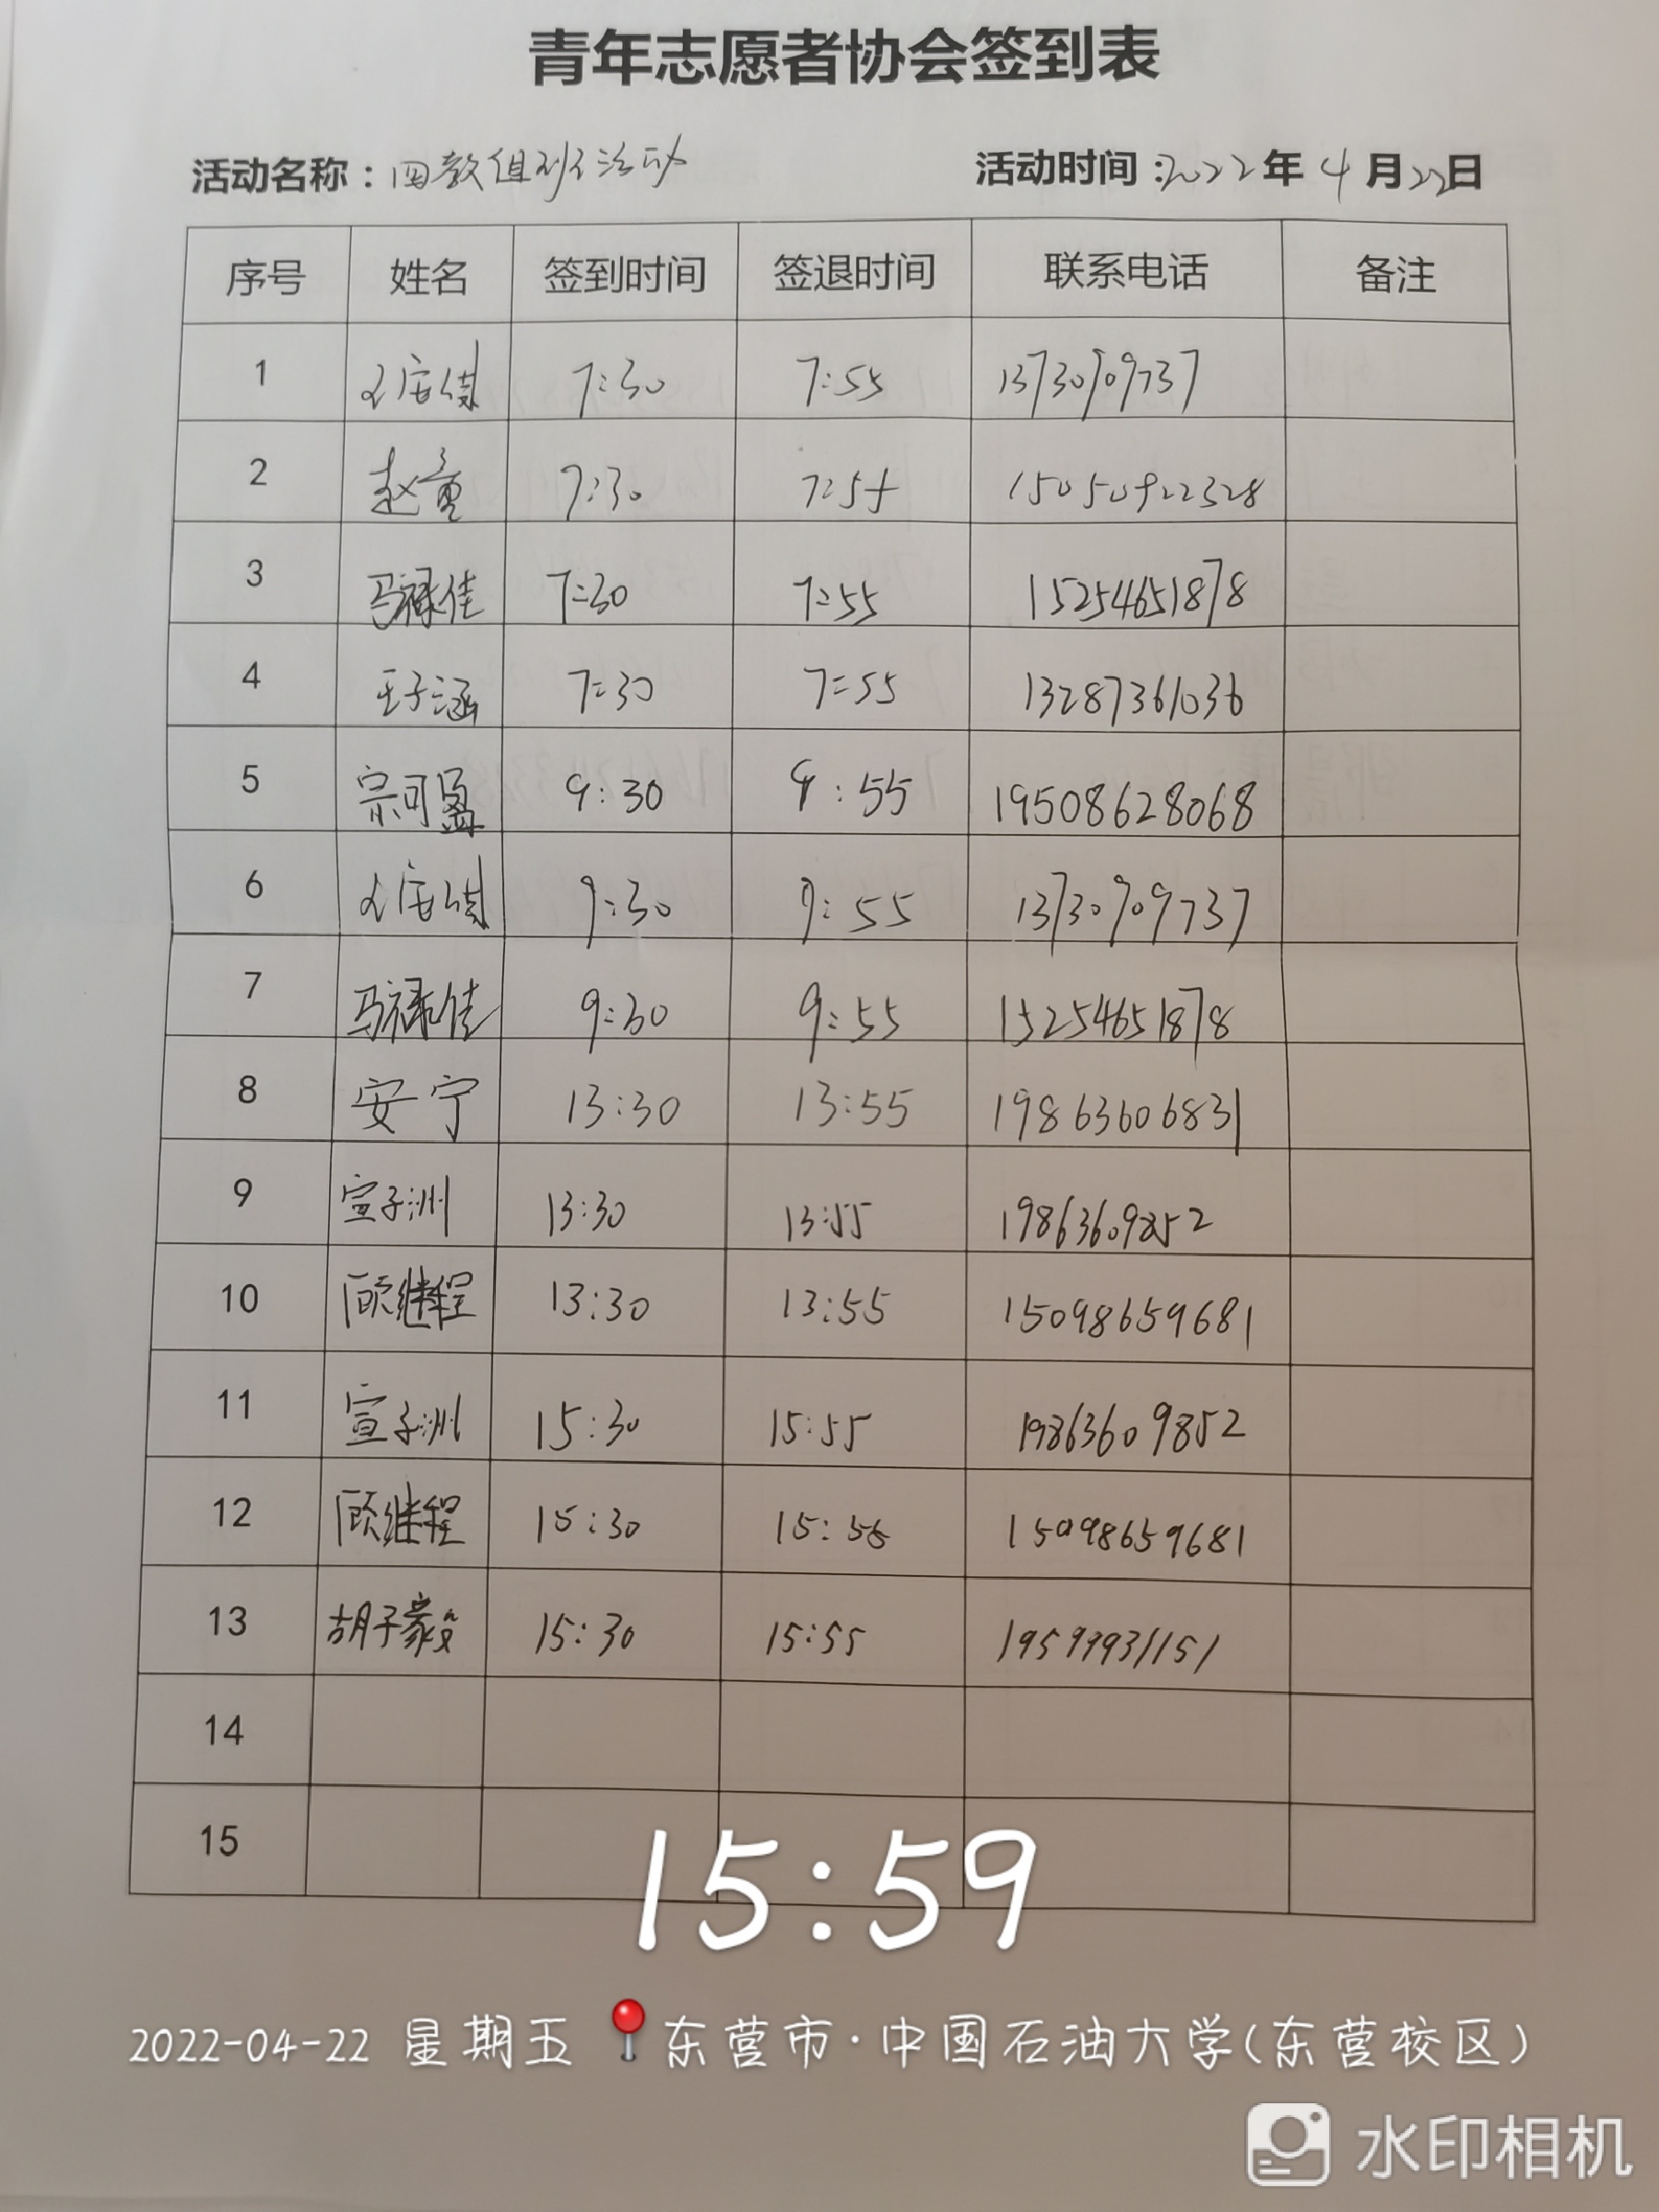 青年志愿者协会签到表
活动名称：四教组织活动 活动时间：2022年4月22日
序号 姓名 签到时间 签退时间 联系电话 备注
1 7:30 7:55 13730909737
2 赵童 7:30 7:55 15050922328
3 马禄佳 7:30 7:55 15254651878
4 王子涵 7:30 7:55 13287361036
5 宗可盈 9:30 9:55 19508628068
6 9:30 9:55 13730909737
7 马禄佳 9:30 9:55 15254651878
8 安宁 13:30 13:55 19863606831
9 宣子洲 13:30 13:55 19863609852
10 顾继程 13:30 13:55 15098659681
11 宣子洲 15:30 15:55 19863609852
12 顾继程 15:30 15:55 15098659681
13 胡子毅 15:30 15:55 19599931151
14
15
15:59
2022-04-22 星期五 东营市·中国石油大学(东营校区)
水印相机